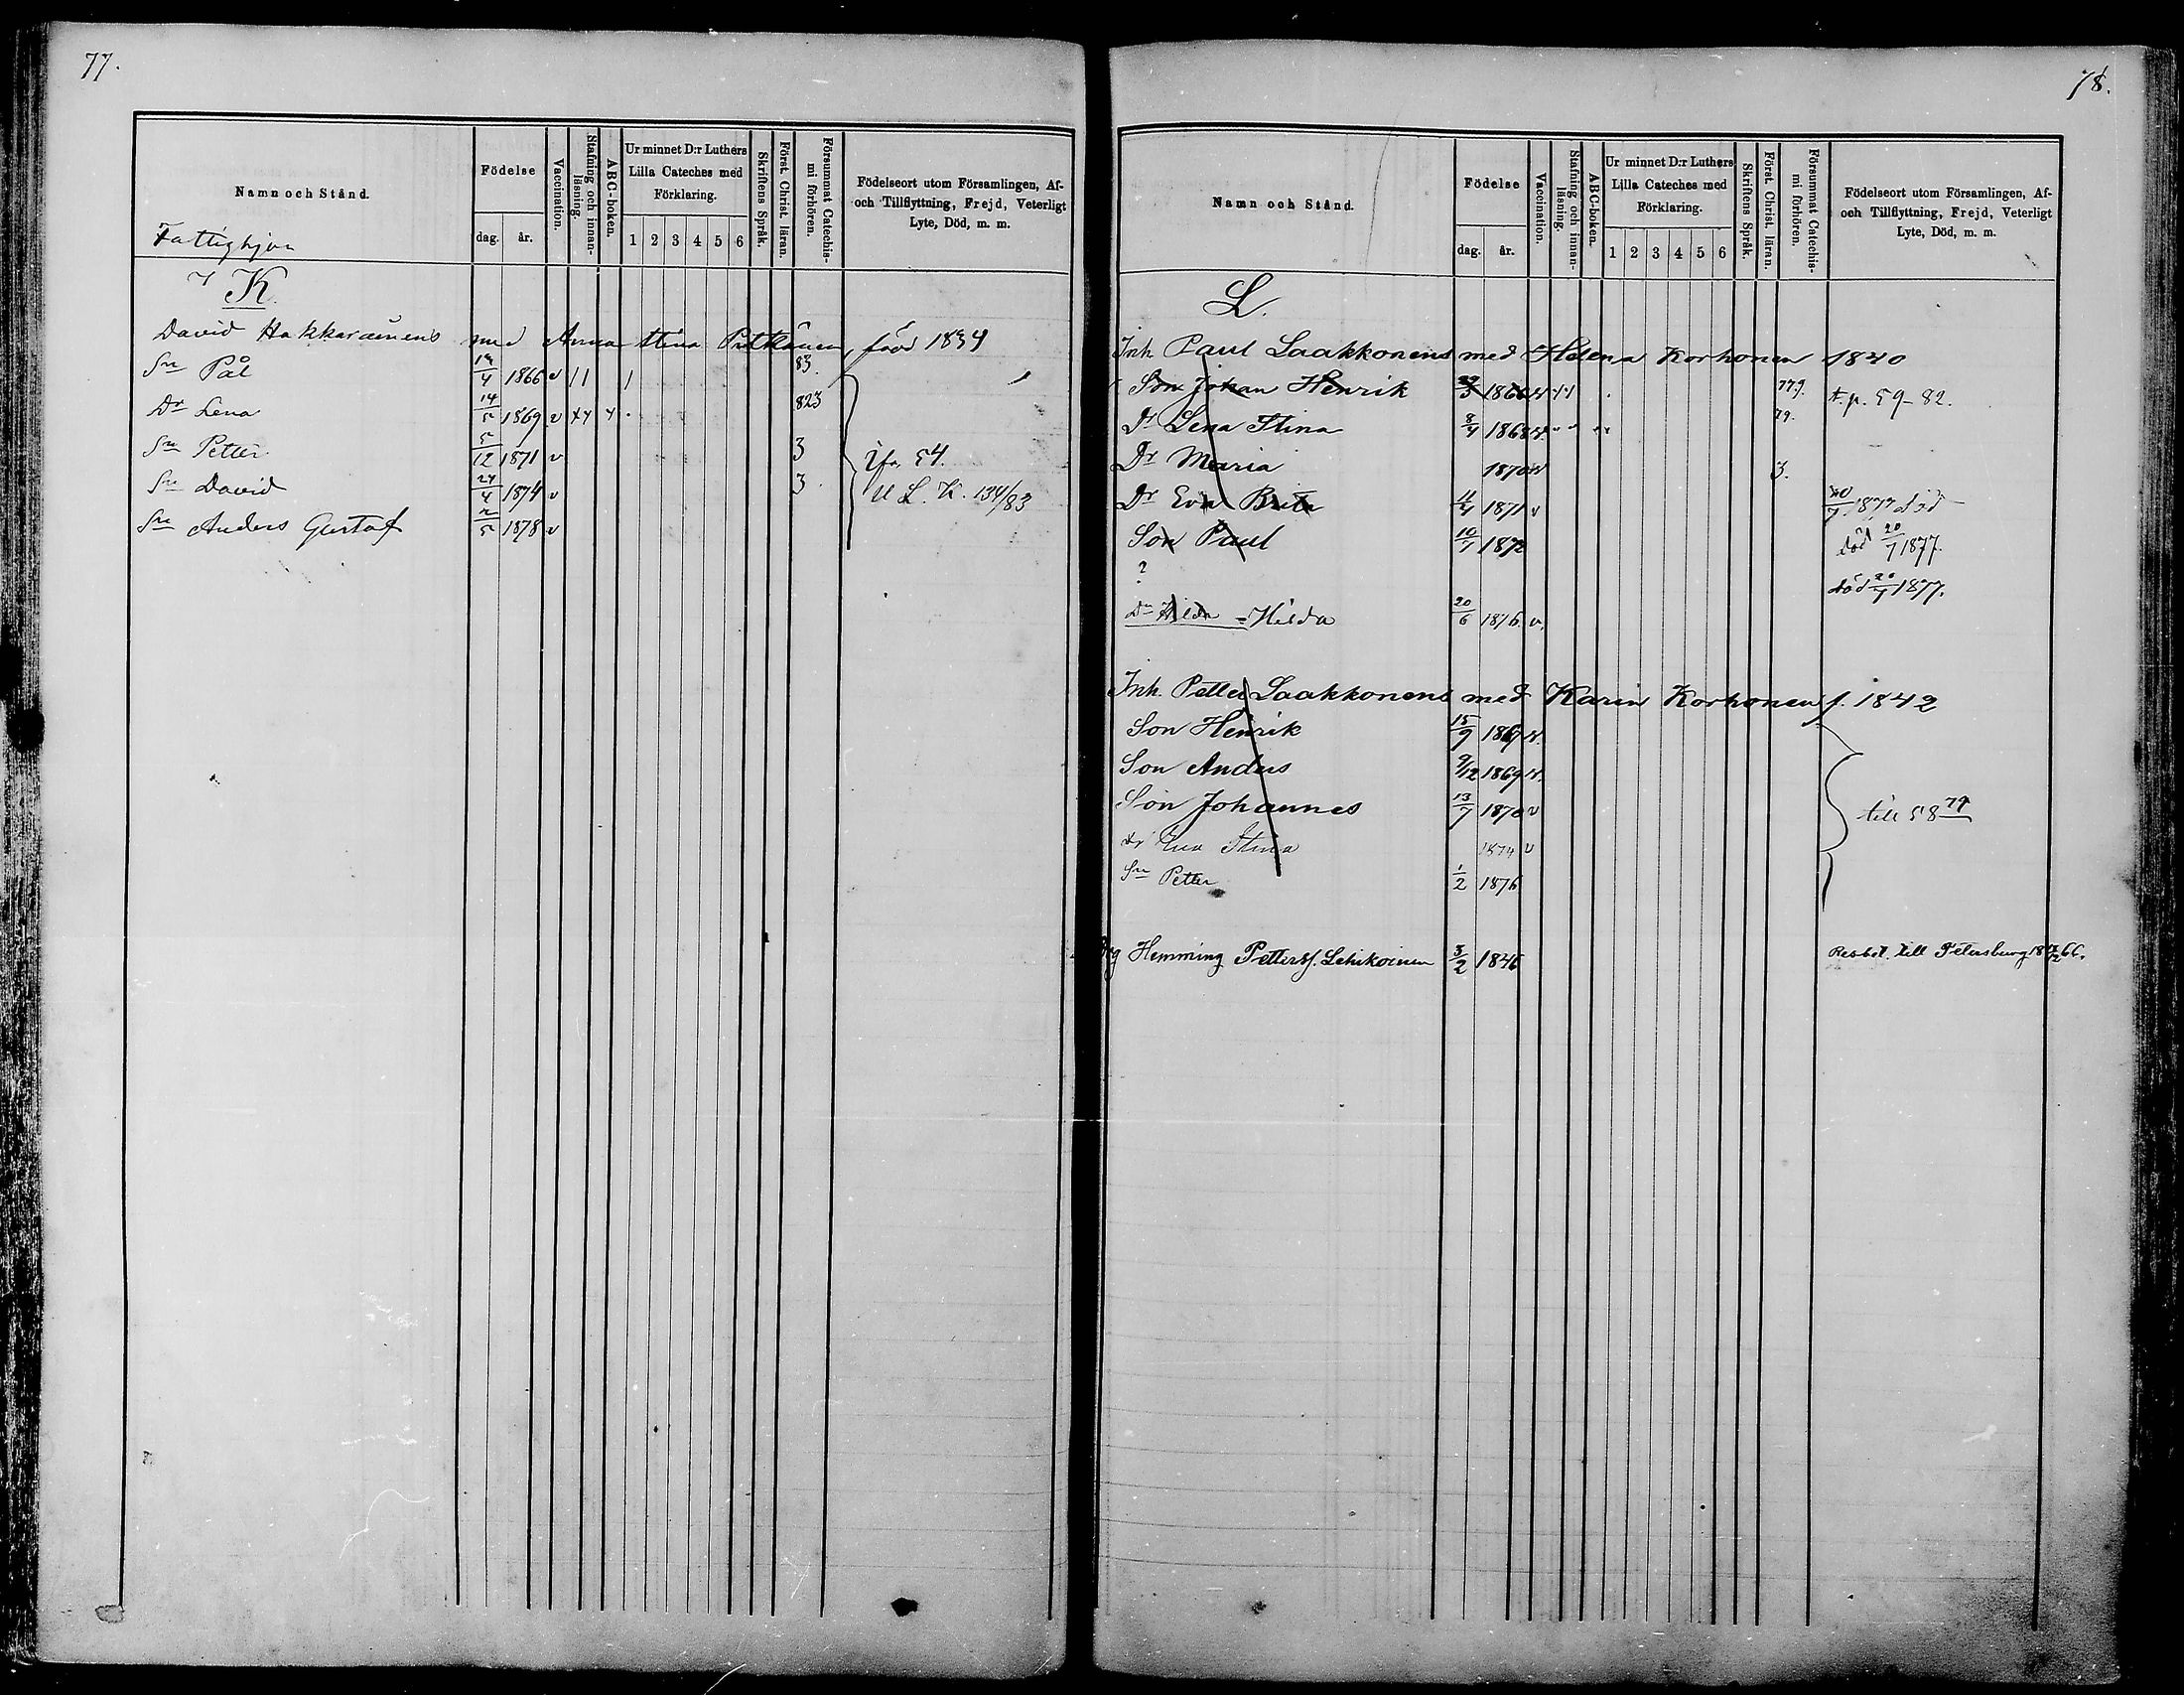 77.
Namn och Stånd.
Födelse
dag.
år.
Vaccination.
Stafning och innan-
läsning.
ABC-boken.
Ur minnet D:r Luthers
Lilla Cateches med
Förklaring.
1 2 3 4 5 6
Skriftens Språk.
Först. Christ. läran.
Försummat Catechis-
mi förhören.
Födelseort utom Församlingen, Af-
och Tillflyttning, Frejd, Veterligt
Lyte, Död, m. m.
Fattighjon
K.
David Hakkarainens med Anna Stina Pitkänen, född 1834
Sn Pål 4 1866 v 11 1 83.
Dr Lena 14/5 1869 v xx x . 823
Sn Petter 5/12 1871 v 3 54.
Sn David 24/4 1874 v 3. U L. K. 134/83
Sn Anders Gustaf 2/5 1878 v
78.
Namn och Stånd.
Födelse
dag.
år.
Vaccination.
Stafning och innan-
läsning.
ABC-boken.
Ur minnet D:r Luthers
Lilla Cateches med
Förklaring.
1 2 3 4 5 6
Skriftens Språk.
Först. Christ. läran.
Försummat Catechis-
mi förhören.
Födelseort utom Församlingen, Af-
och Tillflyttning, Frejd, Veterligt
Lyte, Död, m. m.
L.
Inh. Paul Laakkonens med Helena Korhonen 1840
Son Johan Henrik 1866 779. t. p. 59-82.
Dr Lena Stina 8/4 1868 79.
Dr Maria 1870 v 3.
Dr Eva Brita 4/4 1871 v 1877 död
Son Paul 10/7 1872 död 20/7 1877.
?
död 20/7 1877.
Dr Hilda = Hilda 20/6 1876. v.
Inh. Petter Laakkonens med Karin Korhonen f. 1842
Son Henrik 15/9 1867 v.
Son Anders 9/12 1869 v.
Son Johannes 13/7 1870 v till 58 79
dr Eva Stina 1874 v
Sn Petter 1/2 1876
Hemming Petterss. Lehikoinen 3/2 1846 Resbet. till Petersburg